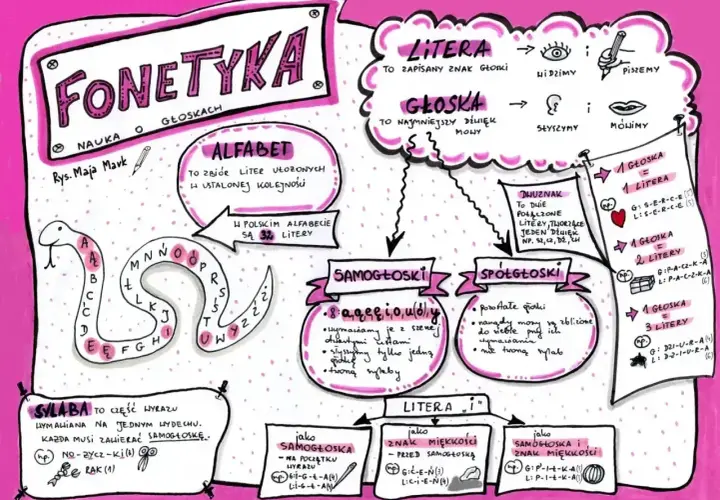 FONETYKA
NAUKA O GŁOSKACH
Rys. Maja Mavk
LITERA
TO ZAPISANY ZNAK GŁOSKI
WIDZIMY
i
PISZEMY
GŁOSKA
TO NAJMNIEJSZY DŹWIĘK
MOWY
SŁYSZYMY
i
MÓWIMY
ALFABET
TO ZBIÓR LITER UŁOŻONYCH
W USTALONEJ KOLEJNOŚCI
W POLSKIM ALFABECIE
SĄ 32 LITERY
A Ą B C Ć D E Ę F G H I J K L Ł M N Ń O Ó P R S Ś T U W Y Z Ź Ż
DWUZNAK
TO DWIE
POŁĄCZONE
LITERY, TWORZĄCE
JEDEN DŹWIĘK
NP. SZ, CZ, DŻ, CH
1 GŁOSKA
=
1 LITERA
np.
G: S-E-R-C-E (5)
L: S-E-R-C-E (5)
1 GŁOSKA
=
2 LITERY
np.
G: P-A-CZ-K-A (5)
L: P-A-C-Z-K-A (6)
1 GŁOSKA
=
3 LITERY
np.
G: DZI-U-R-A (4)
L: D-Z-I-U-R-A (6)
SAMOGŁOSKI
a, ą, e, ę, i, o, u/ó, y
wymawiamy je z szeroko
otwartymi ustami
słyszymy tylko jedną
głoskę
tworzą sylaby
SPÓŁGŁOSKI
pozostałe głoski
narządy mowy są zbliżone
do siebie przy ich
wymawianiu
nie tworzą sylab
SYLABA TO CZĘŚĆ WYRAZU
WYMAWIANA NA JEDNYM WYDECHU.
KAŻDA MUSI ZAWIERAĆ SAMOGŁOSKĘ.
np. NO-ŻYCZ-KI (3)
RAK (1)
LITERA "i"
jako
SAMOGŁOSKA
- NA POCZĄTKU
WYRAZU
np. G: I-G-Ł-A (4)
L: I-G-Ł-A (4)
jako
ZNAK MIĘKKOŚCI
- PRZED SAMOGŁOSKĄ
np.
jako
SAMOGŁOSKA i
ZNAK MIĘKKOŚCI
np.
L: P-I-Ł-K-A (5)